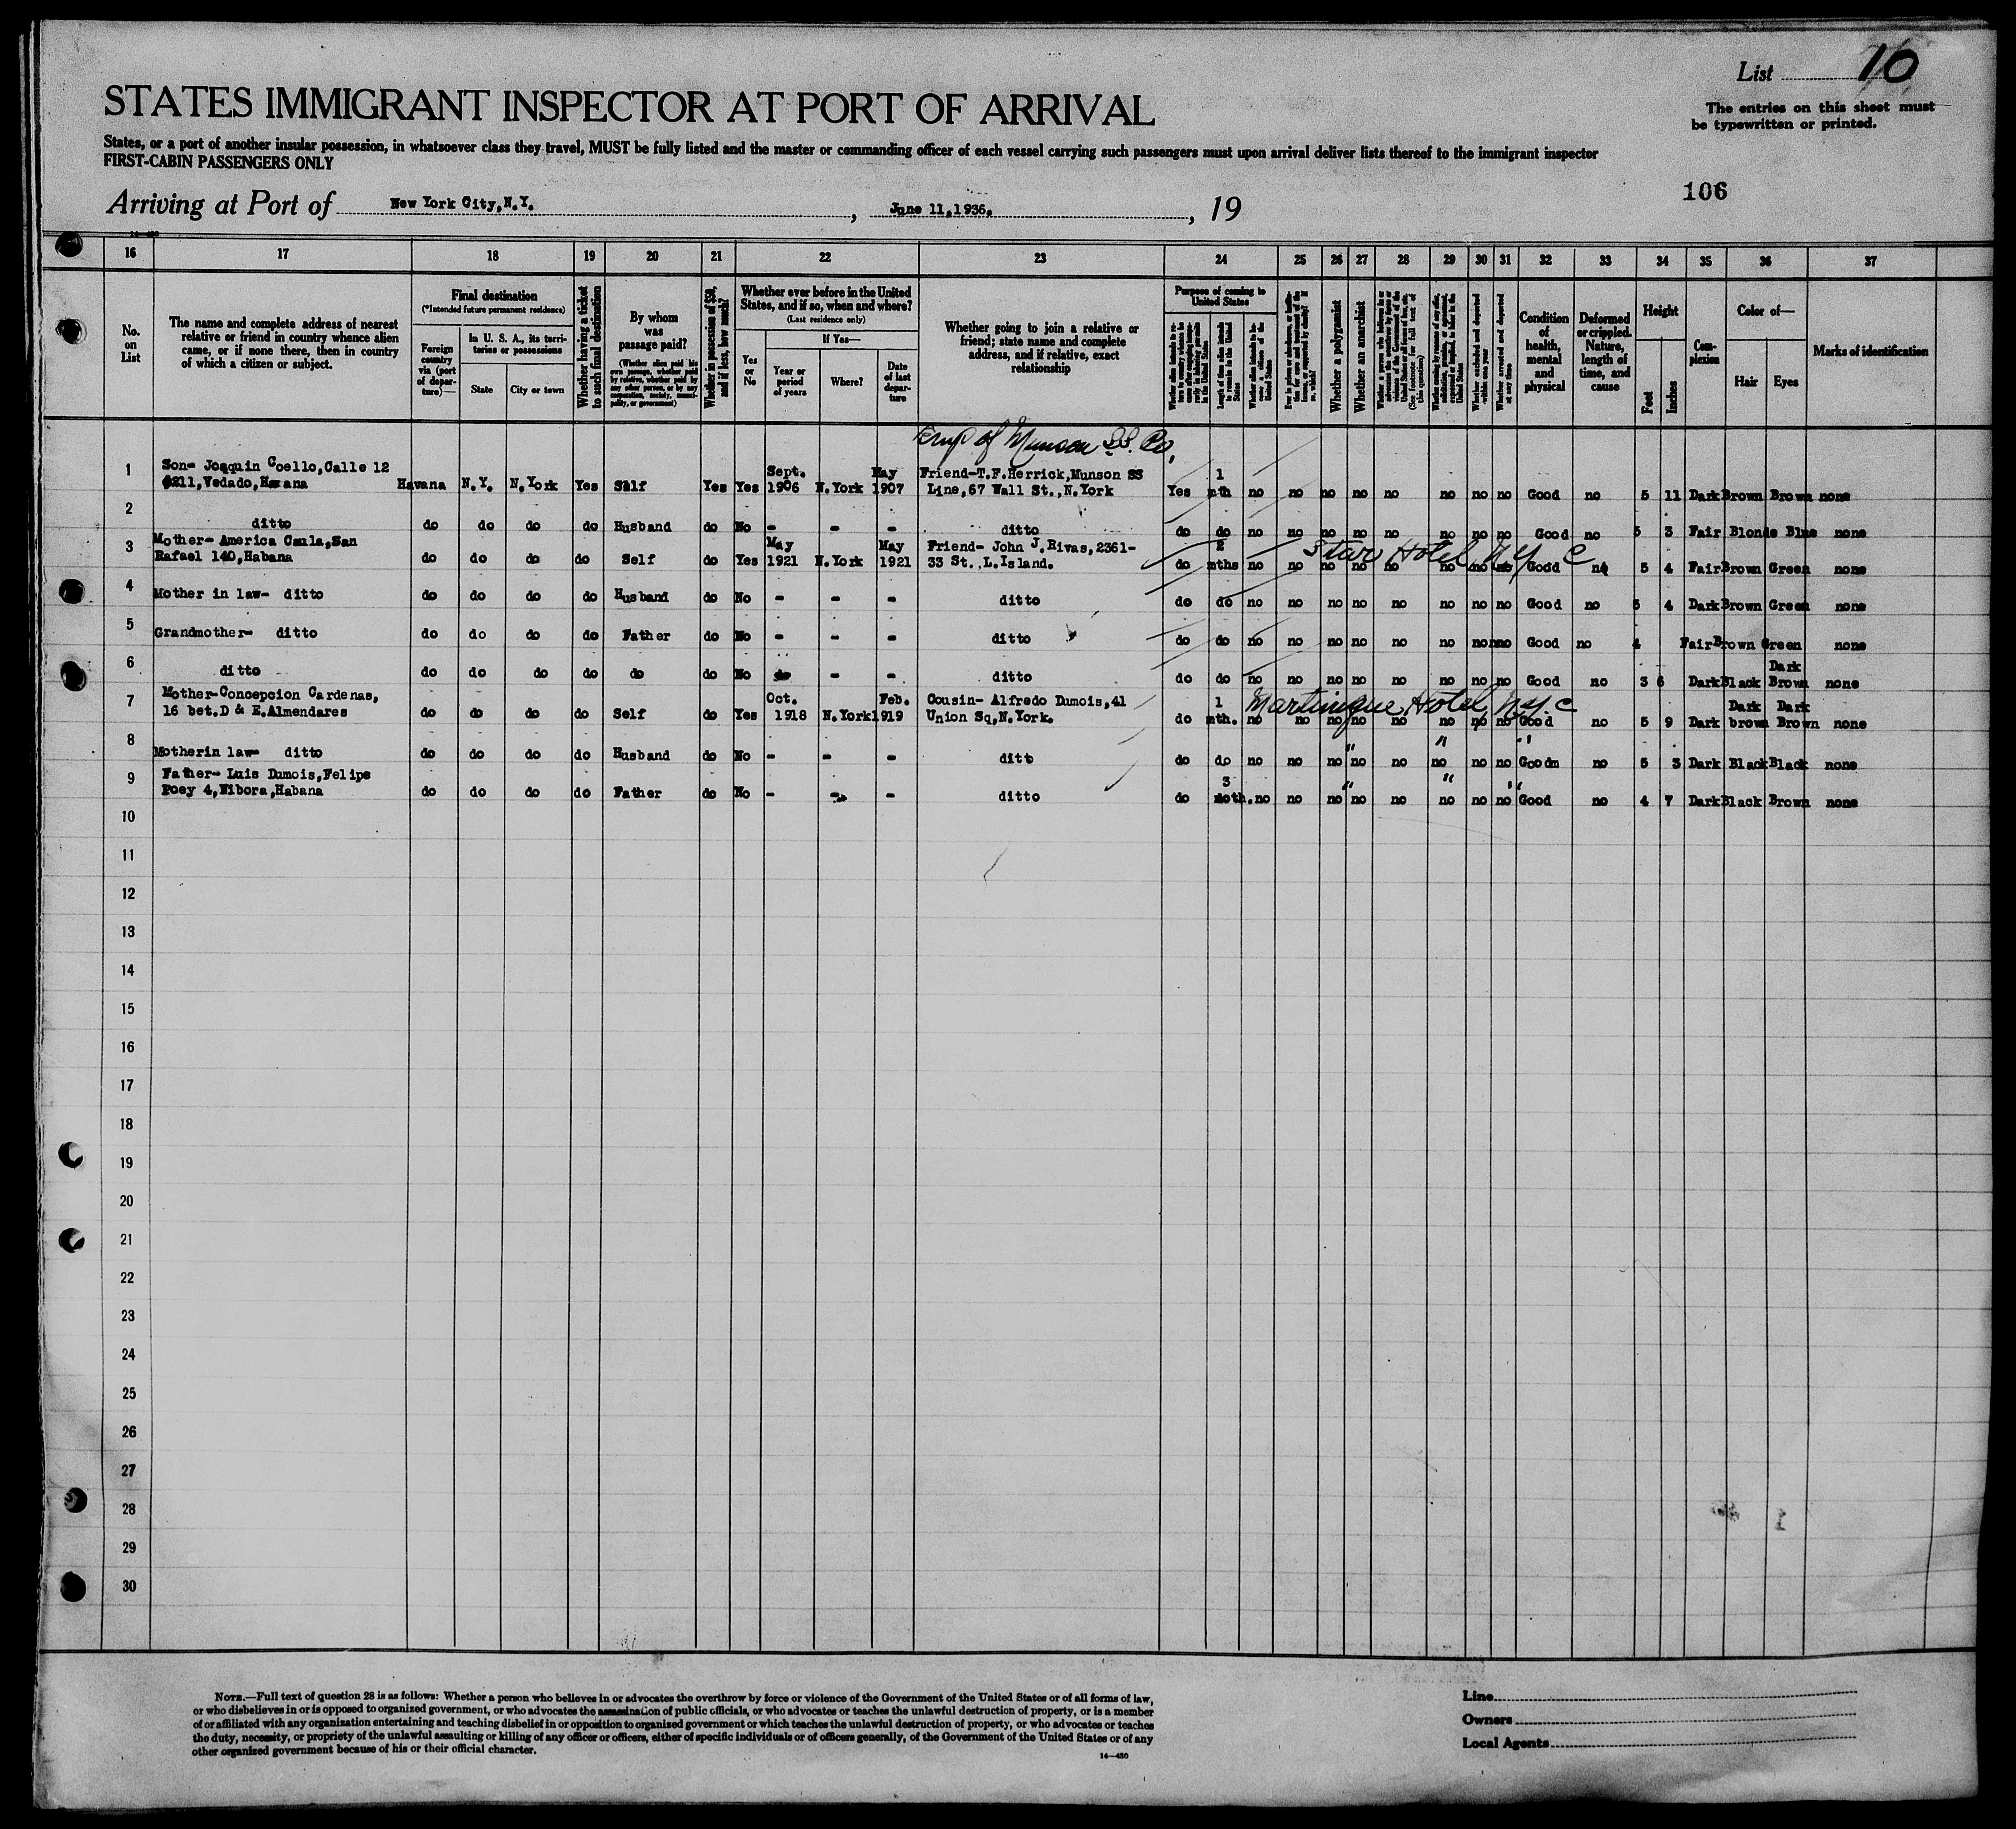 List 10
STATES IMMIGRANT INSPECTOR AT PORT OF ARRIVAL
The entries on this sheet must
be typewritten or printed.
States, or a port of another insular possession, in whatsoever class they travel, MUST be fully listed and the master or commanding officer of each vessel carrying such passengers must upon arrival deliver lists thereof to the immigrant inspector
FIRST-CABIN PASSENGERS ONLY
106
Arriving at Port of New York City,N.Y. , June 11,1936. , 19
16 17 18 19 20 21 22 23 24 25 26 27 28 29 30 31 32 33 34 35 36 37
No.
on
List
The name and complete address of nearest
relative or friend in country whence alien
came, or if none there, then in country
of which a citizen or subject.
Final destination
(*Intended future permanent residence)
Foreign
country
via (port
of depar-
ture)—
In U. S. A., its terri-
tories or possessions
State
City or town
Whether having a ticket
to such final destination
By whom
was
passage paid?
(Whether alien paid his
own passage, whether paid
by relative, whether paid by
any other person, or by any
corporation, society, munici-
pality, or government)
Whether in possession of $50,
and if less, how much?
Whether ever before in the United
States, and if so, when and where?
(Last residence only)
Yes
or
No
If Yes—
Year or
period
of years
Where?
Date
of last
depar-
ture
Whether going to join a relative or
friend; state name and complete
address, and if relative, exact
relationship
Purpose of coming to
United States
Length of time alien intends
to remain in the United
States
Whether a polygamist
Whether an anarchist
(See footnote for full text of
this question)
Whether excluded and deported
within one year
Whether arrested and deported
at any time
Condition
of
health,
mental
and
physical
Deformed
or crippled.
Nature,
length of
time, and
cause
Height
Feet
Inches
Com-
plexion
Color of—
Hair
Eyes
Marks of identification
Emp of Munson S.S. Co.
1 Son- Joaquin Coello,Calle 12 Sept. May Friend-T.F.Herrick,Munson SS 1
#211,Vedado,Havana Havana N.Y. N.York Yes Self Yes Yes 1906 N.York 1907 Line,67 Wall St.,N.York Yes mth no no no no no no no no Good no 5 11 Dark Brown Brown none
2 ditto do do do do Husband do No - - - ditto do do no no no no no no no no Good no 5 3 Fair Blonde Blue none
3 Mother- America Caula,San May May Friend- John J.Rivas,2361- 2 Star Hotel N Y C
Rafael 140,Habana do do do do Self do Yes 1921 N.York 1921 33 St.,L.Island. do mths no no no no no no no no Good no 5 4 Fair Brown Green none
4 Mother in law- ditto do do do do Husband do No - - - ditto do do no no no no no no no no Good no 5 4 Dark Brown Green none
5 Grandmother- ditto do do do do Father do No - - - ditto do do no no no no no no no no Good no 4 Fair Brown Green none
6 ditto do do do do do do No do - - ditto do do no no no no no no no no Good no 3 6 Dark Black Dark Brown none
7 Mother-Concepcion Cardenas, Oct. Feb. Cousin- Alfredo Dumois,41 1 Martinique Hotel N.Y.C Dark Dark
16 bet.D & E.Almendares do do do do Self do Yes 1918 N.York 1919 Union Sq,N.York. do mth. no no no no no no no no Good no 5 9 Dark brown Brown none
8 Motherin law- ditto do do do do Husband do No - - - ditt do do no no no no no no no no Goodm no 5 3 Dark Black Black none
" " "
9 Father- Luis Dumois,Felipe 3 " " "
Poey 4,Vibora,Habana do do do do Father do No - - - ditto do moth. no no no no no no no no Good no 4 7 Dark Black Brown none
10
11
12
13
14
15
16
17
18
19
20
21
22
23
24
25
26
27
28
29
30
NOTE.—Full text of question 28 is as follows: Whether a person who believes in or advocates the overthrow by force or violence of the Government of the United States or of all forms of law,
or who disbelieves in or is opposed to organized government, or who advocates the assassination of public officials, or who advocates or teaches the unlawful destruction of property, or is a member
of or affiliated with any organization entertaining and teaching disbelief in or opposition to organized government or which teaches the unlawful destruction of property, or who advocates or teaches
the duty, necessity, or propriety of the unlawful assaulting or killing of any officer or officers, either of specific individuals or of officers generally, of the Government of the United States or of any
other organized government because of his or their official character.
14—430
Line
Owners
Local Agents